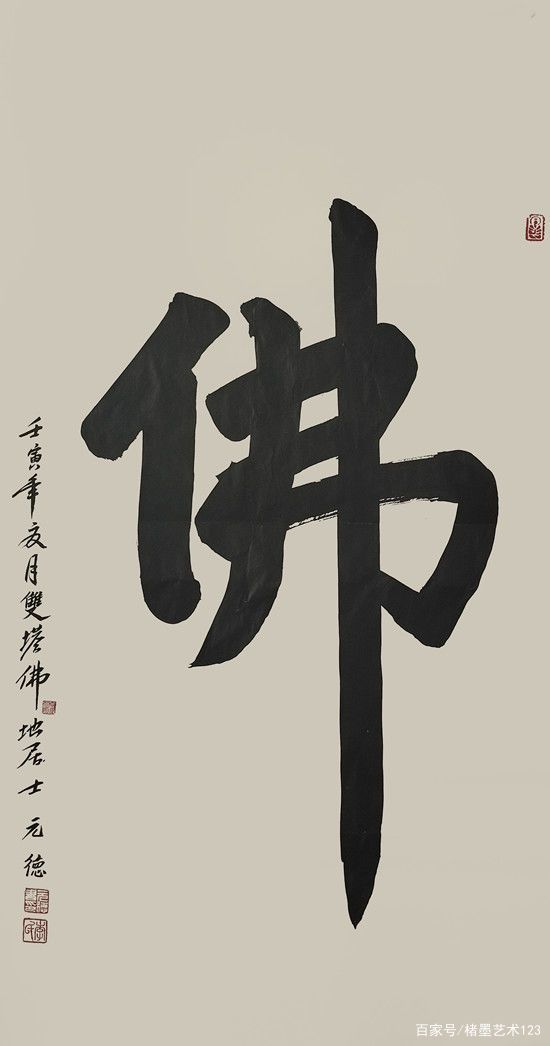 佛
壬寅年亥月雙塔佛地居士元德
百家号/楮墨艺术123